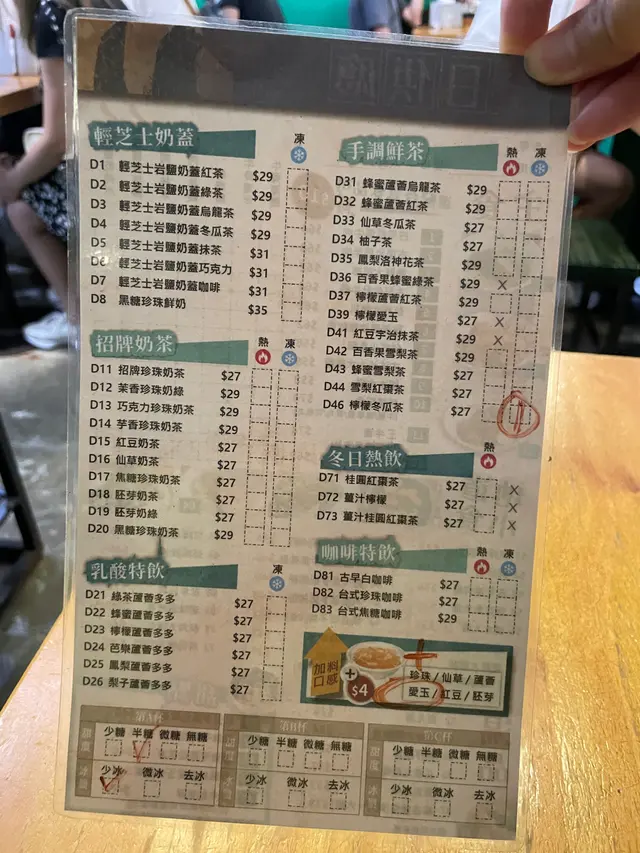 日供應
輕芝士奶蓋 凍
D1 輕芝士岩鹽奶蓋紅茶 $29
D2 輕芝士岩鹽奶蓋綠茶 $29
D3 輕芝士岩鹽奶蓋烏龍茶 $29
D4 輕芝士岩鹽奶蓋冬瓜茶 $29
D5 輕芝士岩鹽奶蓋抹茶 $31
D6 輕芝士岩鹽奶蓋巧克力 $31
D7 輕芝士岩鹽奶蓋咖啡 $31
D8 黑糖珍珠鮮奶 $35
招牌奶茶 熱 凍
D11 招牌珍珠奶茶 $27
D12 茉香珍珠奶綠 $29
D13 巧克力珍珠奶茶 $29
D14 芋香珍珠奶茶 $29
D15 紅豆奶茶 $27
D16 仙草奶茶 $27
D17 焦糖珍珠奶茶 $27
D18 胚芽奶茶 $27
D19 胚芽奶綠 $27
D20 黑糖珍珠奶茶 $29
乳酸特飲 凍
D21 綠茶蘆薈多多 $27
D22 蜂蜜蘆薈多多 $27
D23 檸檬蘆薈多多 $27
D24 芭樂蘆薈多多 $27
D25 鳳梨蘆薈多多 $27
D26 梨子蘆薈多多 $27
手調鮮茶 熱 凍
D31 蜂蜜蘆薈烏龍茶 $29
D32 蜂蜜蘆薈紅茶 $29
D33 仙草冬瓜茶 $27
D34 柚子茶 $27
D35 鳳梨洛神花茶 $29
D36 百香果蜂蜜綠茶 $29 X
D37 檸檬蘆薈紅茶 $29
D39 檸檬愛玉 $27 X
D41 紅豆宇治抹茶 $29 X
D42 百香果雪梨茶 $29
D43 蜂蜜雪梨茶 $27
D44 雪梨紅棗茶 $27
D46 檸檬冬瓜茶 $27 1
冬日熱飲 熱
D71 桂圓紅棗茶 $27 X
D72 薑汁檸檬 $27 X
D73 薑汁桂圓紅棗茶 $27 X
咖啡特飲 熱 凍
D81 古早白咖啡 $27
D82 台式珍珠咖啡 $27
D83 台式焦糖咖啡 $29
加料口感 + $4
珍珠/仙草/蘆薈
愛玉/紅豆/胚芽
第A杯 第B杯 第C杯
少糖 半糖 微糖 無糖 少糖 半糖 微糖 無糖 少糖 半糖 微糖 無糖
少冰 微冰 去冰 少冰 微冰 去冰 少冰 微冰 去冰